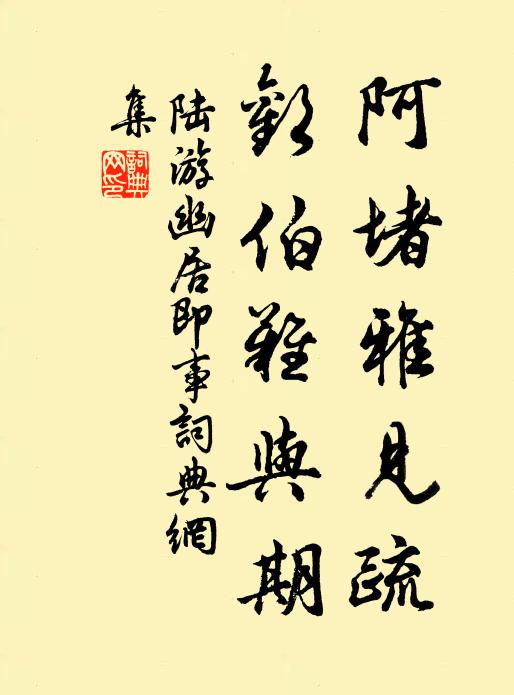 阿堵雅見疏
歡伯難與期
陸游幽居即事詞典網
集
詞典網印